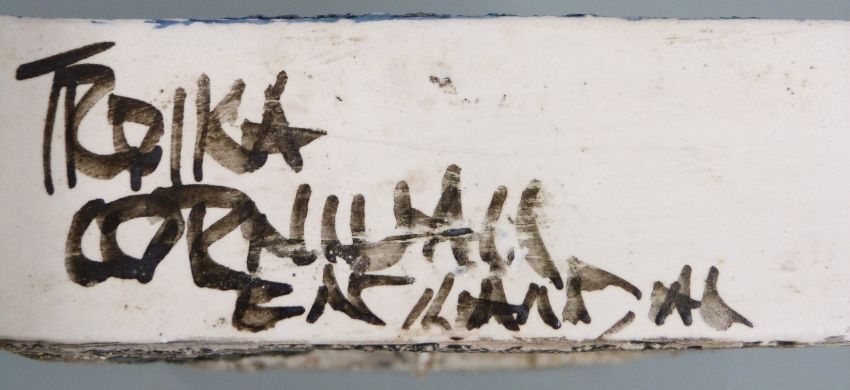 TROIKA
CORNWALL
ENGLAND